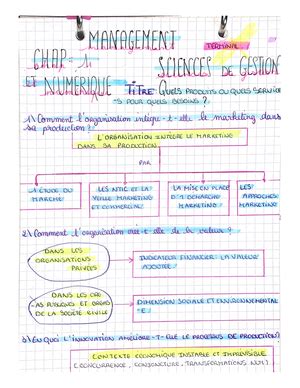 MANAGEMENT
TERMINAL
CHAP. 1
SCIENCES DE GESTION
ET NUMÉRIQUE
TITRE: QUELS PRODUITS OU QUELS SERVICE
-S POUR QUELS BESOINS ?
1) Comment l'organisation intègre-t-elle le marketing dans
sa production ?
L'ORGANISATION INTÈGRE LE MARKETING
DANS SA PRODUCTION
PAR
L'ÉTUDE DU
MARCHÉ
LES NTIC ET LA
VEILLE MARKETING
ET COMMERCIALE
LA MISE EN PLACE
D'1 DÉMARCHE
MARKETING
LES
APPROCHES
MARKETING
2) Comment l'organisation crée-t-elle de la valeur ?
DANS LES
ORGANISATIONS
PRIVÉES
INDICATEUR FINANCIER: LA VALEUR
AJOUTÉE
DANS LES ORG
DE LA SOCIÉTÉ CIVILE
DIMENSION SOCIALE ET ENVIRONNEMENTAL
-E
3) EN QUOI L'INNOVATION AMÉLIORE-T-ELLE LE PROCESSUS DE PRODUCTION?
CONTEXTE ÉCONOMIQUE INSTABLE ET IMPRÉVISIBLE
(CONCURRENCE, CONJONCTURE, TRANSFORMATIONS